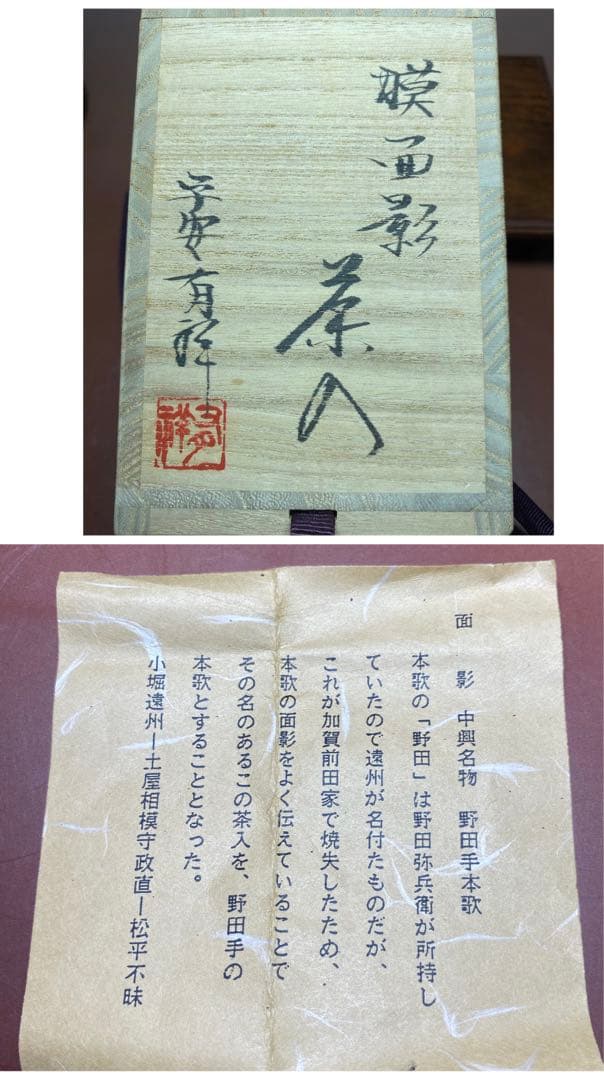 膜面影
茶入
平安 有祥
面影 中興名物 野田手本歌
本歌の「野田」は野田弥兵衛が所持し
ていたので遠州が名付たものだが、
これが加賀前田家で焼失したため、
本歌の面影をよく伝えていることで
その名のあるこの茶入を、野田手の
本歌とすることとなった。
小堀遠州ー土屋相模守政直ー松平不昧